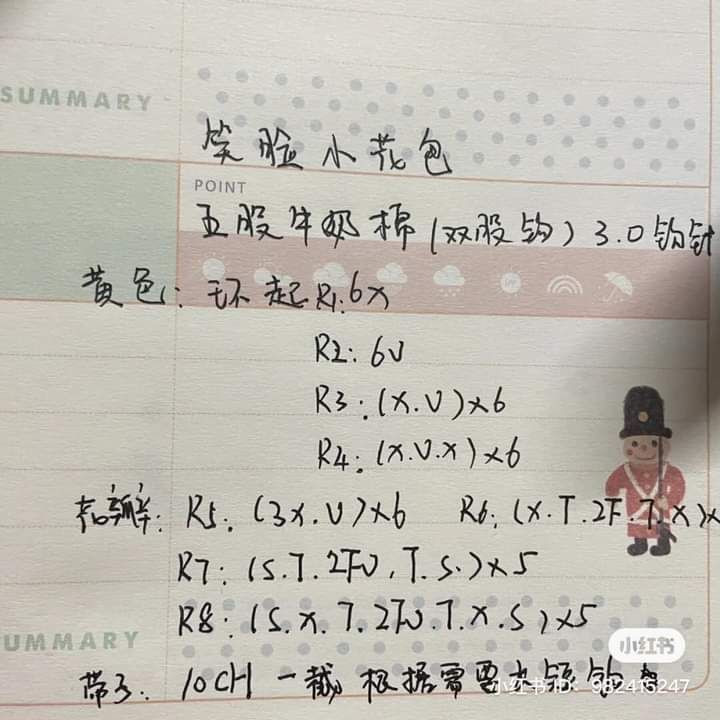 SUMMARY
笑脸小花包
POINT
五股牛奶棉(双股钩) 3.0钩针
黄色: 环起 R1: 6x
R2: 6V
R3: (x.V)x6
R4: (x.V.x)x6
花瓣: R5: (3x.V)x6 R6: (x.T.2F.T.x)x
R7: (S.T.2FV.T.S.)x5
R8: (S.x.T.2FV.T.x.S)x5
UMMARY
小红书
带子: 10CH 一截 根据需要
小红书ID: 982415247